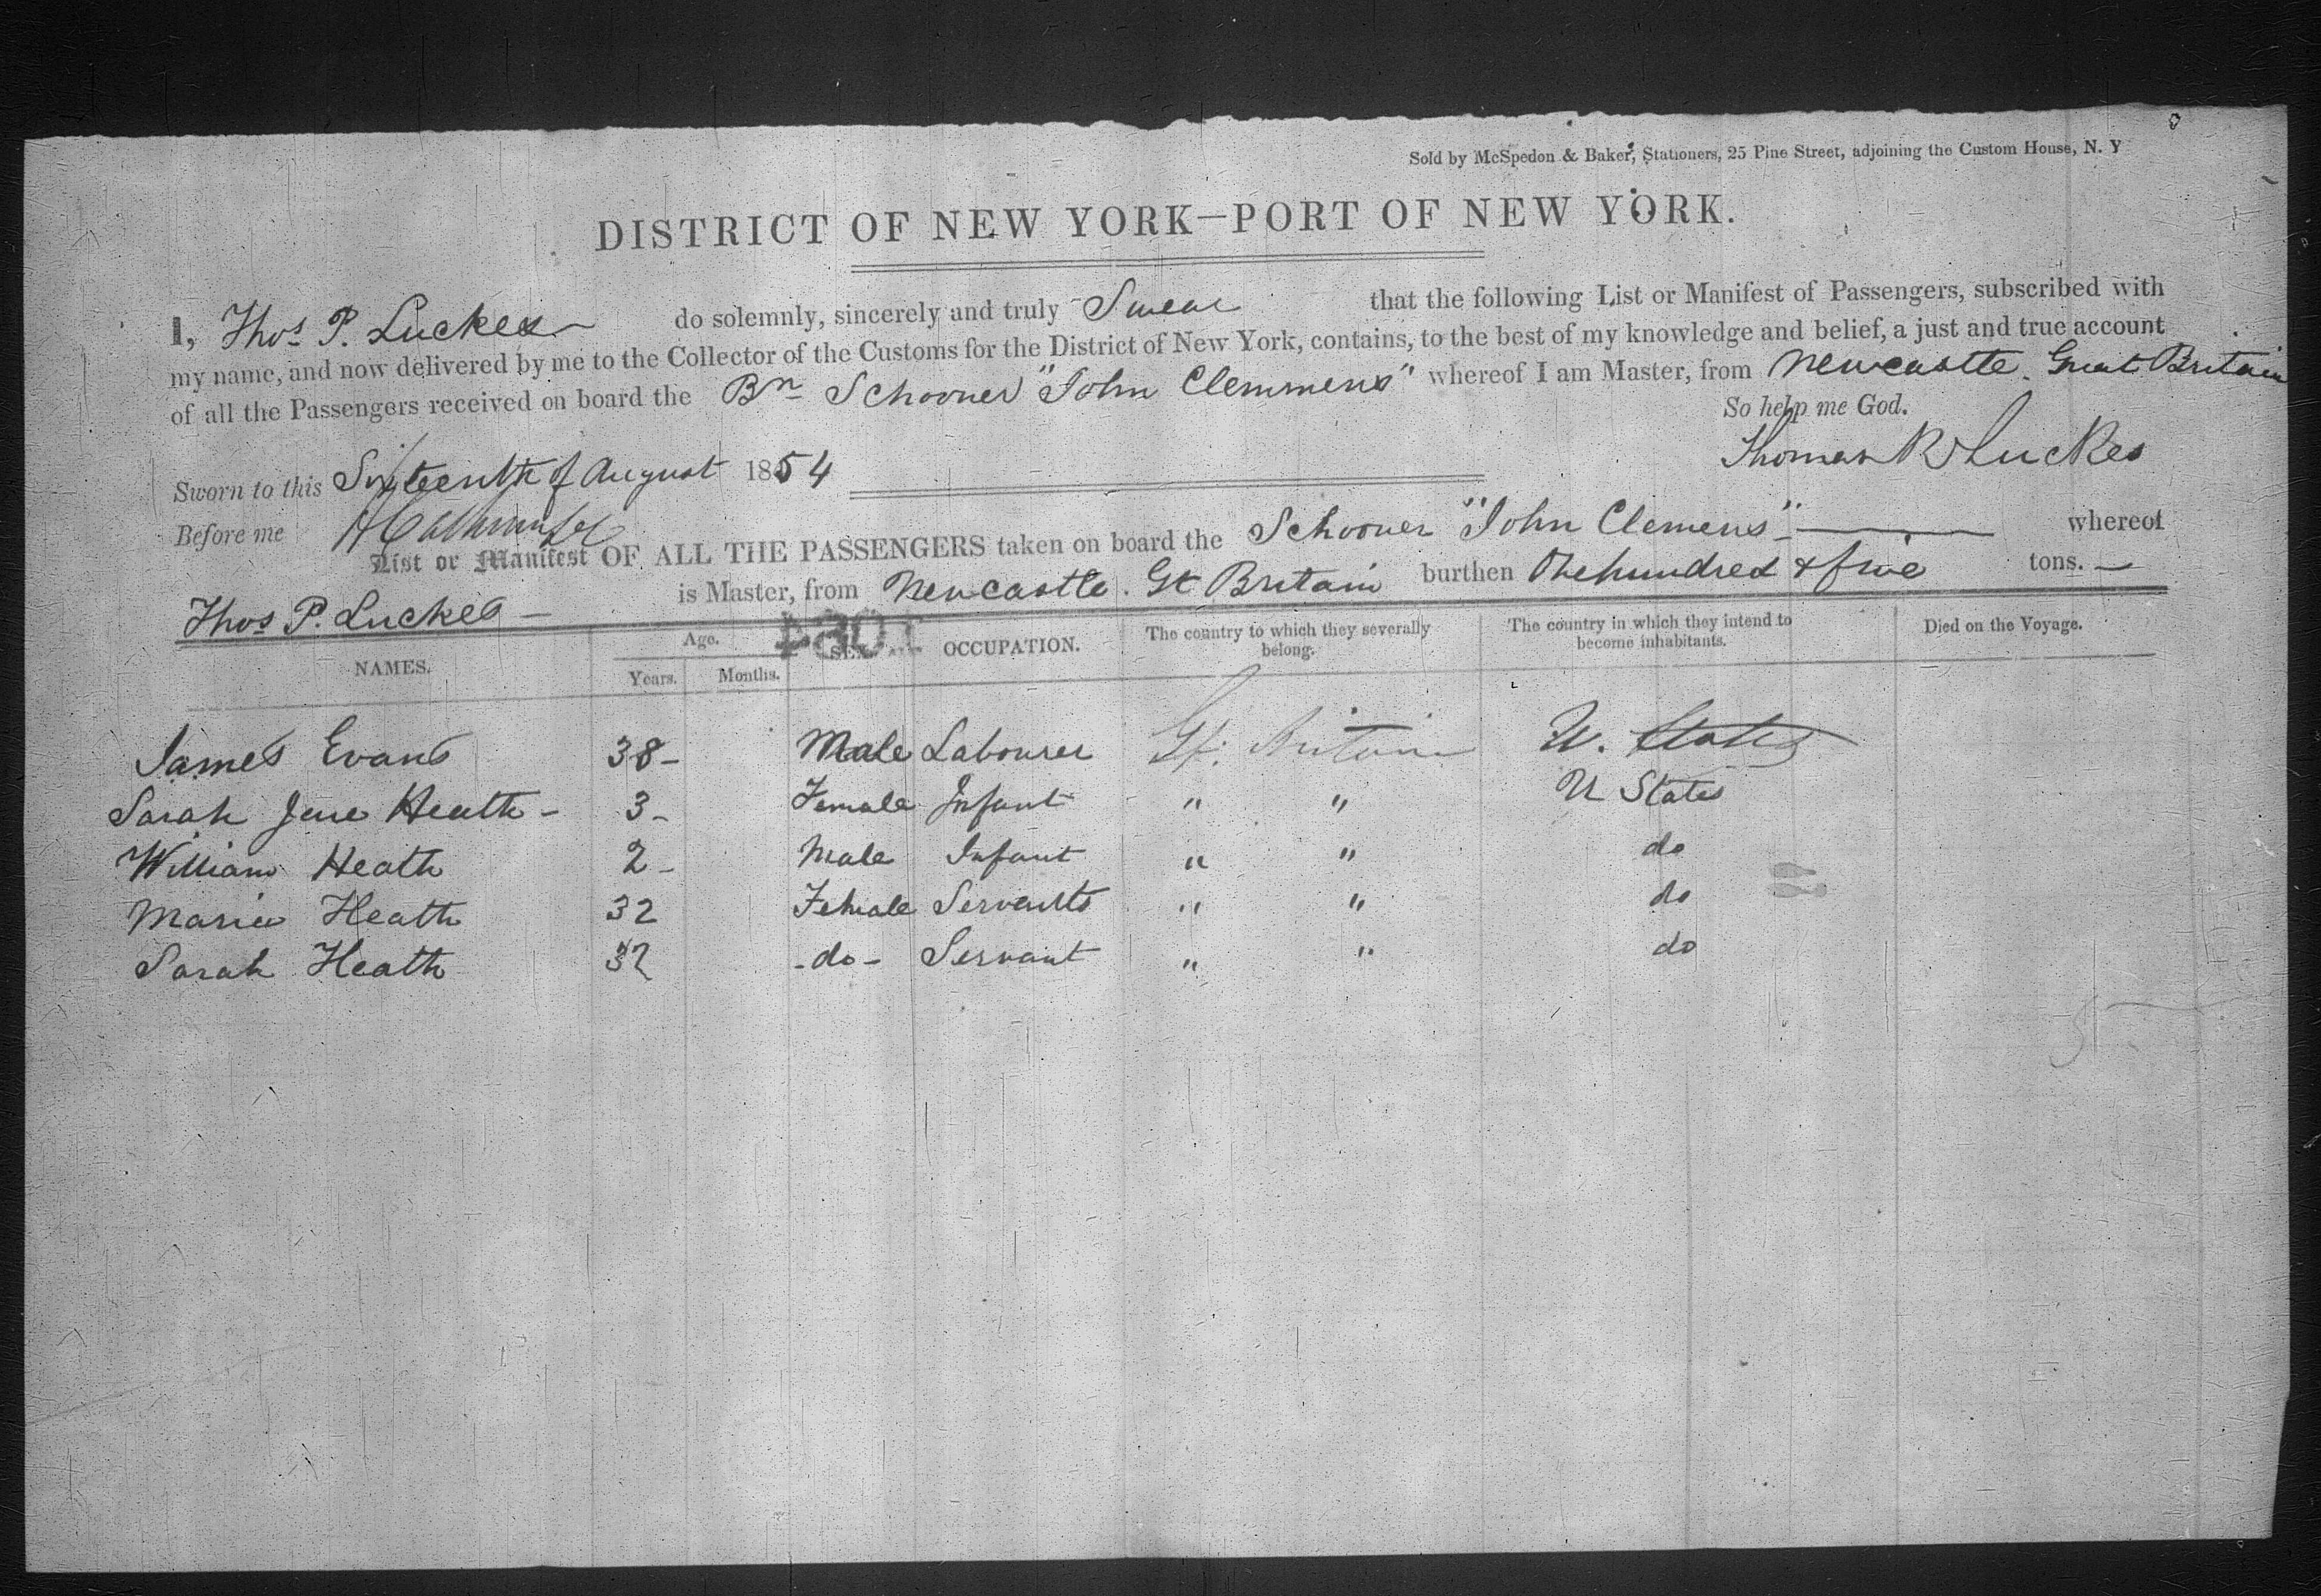 Sold by McSpedon & Baker, Stationers, 25 Pine Street, adjoining the Custom House, N. Y
DISTRICT OF NEW YORK—PORT OF NEW YORK.
I, Thos P. Luckes do solemnly, sincerely and truly Swear that the following List or Manifest of Passengers, subscribed with
my name, and now delivered by me to the Collector of the Customs for the District of New York, contains, to the best of my knowledge and belief, a just and true account
of all the Passengers received on board the Brn Schooner "John Clemmens" whereof I am Master, from Newcastle. Great Britain
So help me God.
Thomas P Luckes
Sworn to this Sixteenth of August 1854
Before me
List or Manifest OF ALL THE PASSENGERS taken on board the Schooner "John Clemens" whereof
Thos P. Luckes is Master, from Newcastle. Gt Britain burthen One hundred & five tons.
NAMES. Age. Years. Months. SEX. OCCUPATION. The country to which they severally belong. The country in which they intend to become inhabitants. Died on the Voyage.
James Evans 38 Male Labourer Gt. Britain U. States
Sarah Jane Heath 3 Female Infant " " U States
William Heath 2 Male Infant " " do
Maria Heath 32 Female Servants " " do
Sarah Heath 32 do Servant " " do